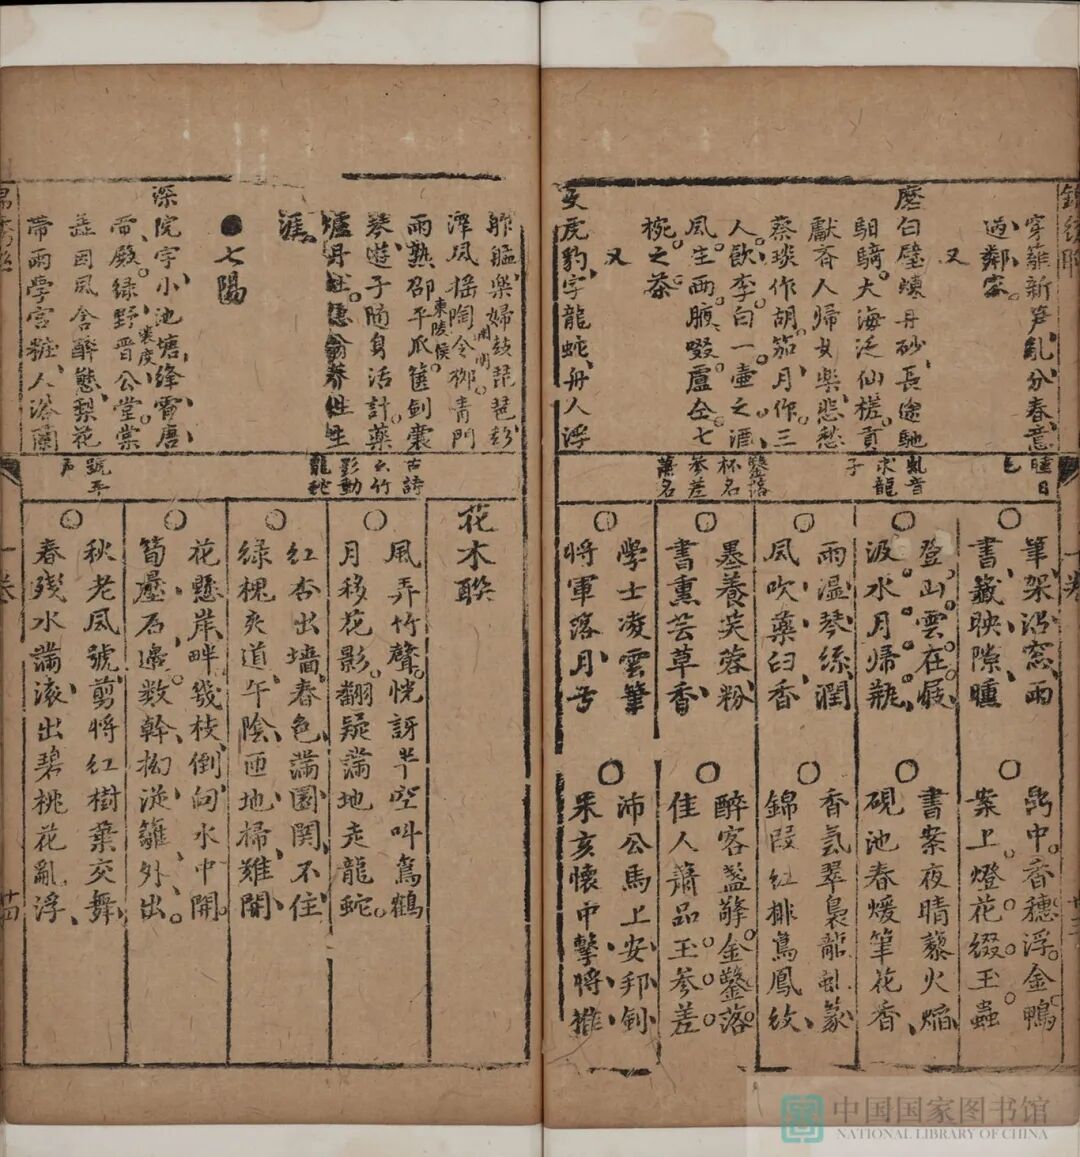 穿籬新笋亂分春意
過鄰家
又
塵白璧煉丹砂長途馳
駟驕大海泛仙槎貢
獻吝人歸女樂悲愁
蔡琰作胡笳月作三
人飲李白一壺之酒
風生兩腋啜盧仝七
椀之茶
又
文虎豹字龍蛇舟人浮
睡目
虬音
求龍
子
鑿落
杯名
參差
簫名
筆架沼窓雨
書籤映隙曈
登山雲在屐
汲水月歸瓶
雨溫琴絲潤
風吹藥臼香
墨養芙蓉粉
書熏芸草香
學士凌雲筆
將軍落月弓
鼎中香穗浮金鴨
案上燈花綴玉蟲
書案夜晴藜火焰
硯池春煖筆花香
香氣翠裊龍虬篆
錦段紅排鳥鳳紋
醉客盞擎金鑿落
佳人簫品玉參差
沛公馬上安邦劍
朱亥懷中擊將推
舴艋樂婦鼓琵琶彭
澤風搖陶令柳青門
淵明
雨熟邵平瓜篋劍囊
東陵侯
琴遊子随身活計藥
爐丹
涯
七陽
深院宇小池塘絳霄唐
帝殿緑野晋公堂棠
裴度
蕋因風含醉態梨花
帶雨學宮粧人浴蘭
古詩
云竹
影動
龍蛇
號平
声
花木聮
風弄竹聲恍訝半空叫鸞鶴
月移花影翻疑滿地走龍蛇
紅杏出墻春色滿園関不住
緑槐夾道午陰匝地掃難開
花懸岸畔幾枝倒向水中開
筍壓石邊数幹拗從籬外出
秋老風號剪將紅樹葉交舞
春殘水滿滚出碧桃花亂浮
一卷
廿四
中国国家图书馆
NATIONAL LIBRARY OF CHINA